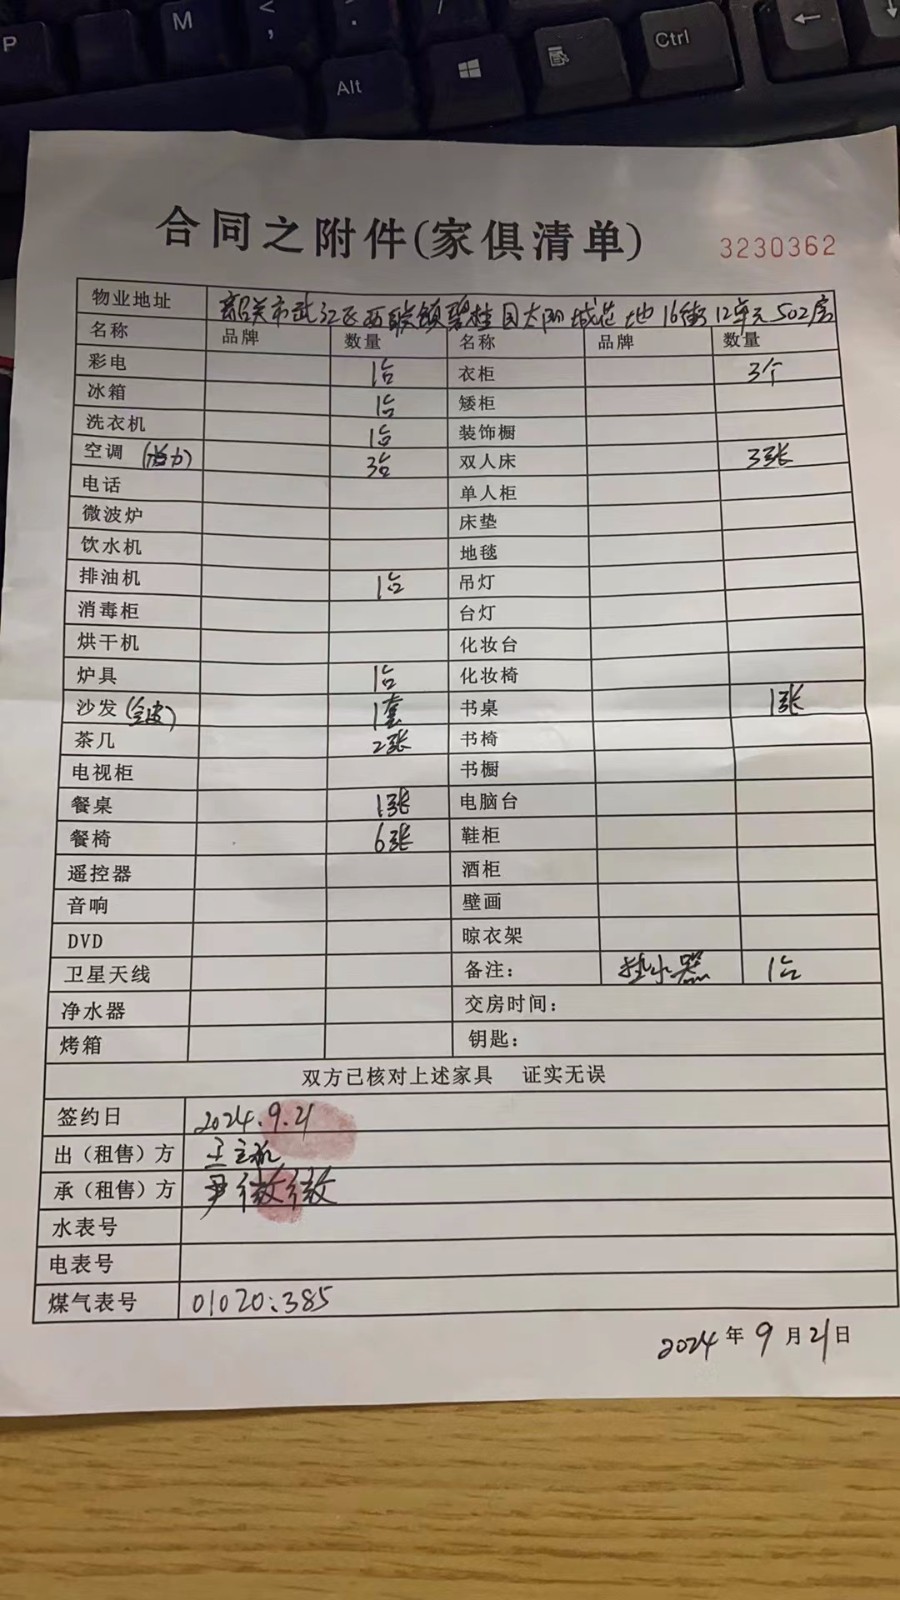 P
M
<
,
.
/
Alt
Ctrl
←
合同之附件(家俱清单)
3230362
物业地址 韶关市武江区西联镇碧桂园太阳城芷地16街12单元502房
名称 品牌 数量 名称 品牌 数量
彩电 1台 衣柜 3个
冰箱 1台 矮柜
洗衣机 1台 装饰橱
空调 (格力) 3台 双人床 3张
电话 单人柜
微波炉 床垫
饮水机 地毯
排油机 1台 吊灯
消毒柜 台灯
烘干机 化妆台
炉具 1台 化妆椅
沙发 (全皮) 1套 书桌 1张
茶几 2张 书椅
电视柜 书橱
餐桌 1张 电脑台
餐椅 6张 鞋柜
遥控器 酒柜
音响 壁画
DVD 晾衣架
卫星天线 备注: 热水器 1台
净水器 交房时间:
烤箱 钥匙:
双方已核对上述家具 证实无误
签约日 2024.9.21
出（租售）方 王
承（租售）方 尹微微
水表号
电表号
煤气表号 01020:385
2024年9月21日